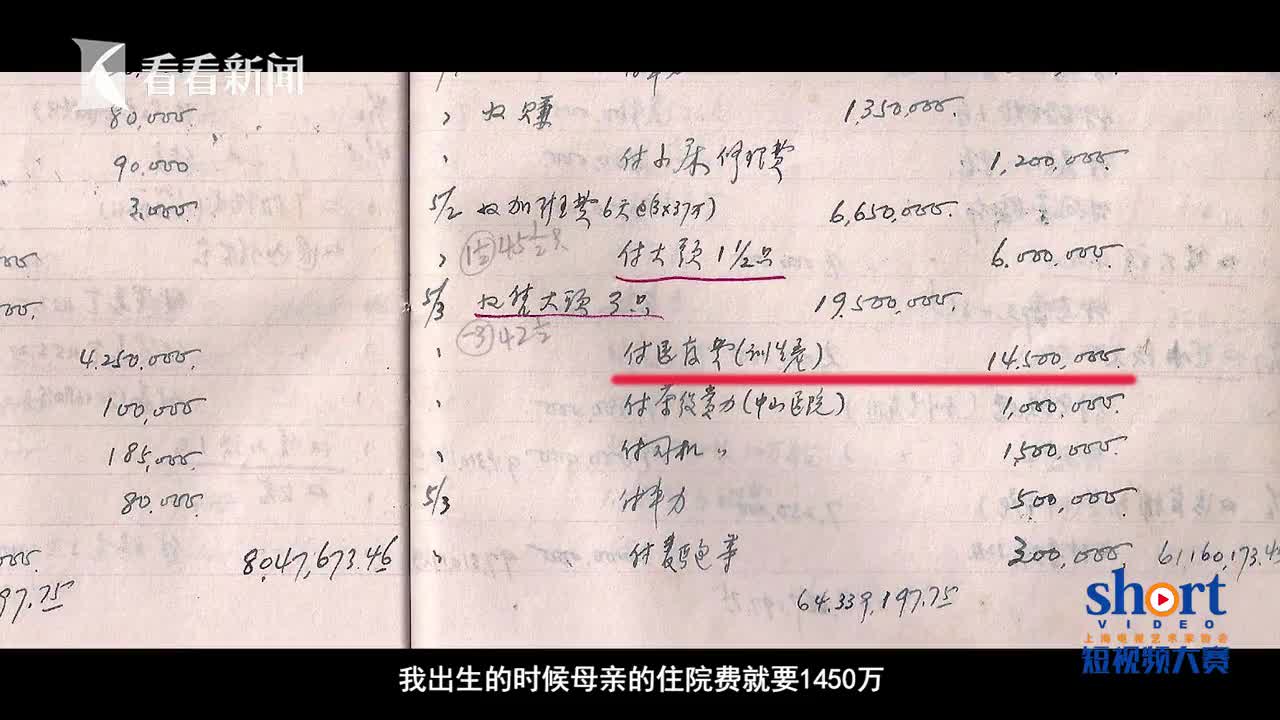 看看新闻
80,000.
90,000
3,000.
4,250,000.
100,000.
185,000.
80,000.
8,047,673.46
97.75
收 1,350,000.
付小床修理费 1,200,000.
5/2 收加班费6天 6,650,000.
45½只
付大头1½只 6,000,000.
5/3 收售大头3只 19,500,000.
-3 42½
付医药费 14,500,000.
付劳役赏力(中山医院) 1,000,000.
付司机 〃 1,500,000.
5/3 付车力 500,000.
付面包等 300,000. 61,160,173.4
64,339,197.75
short
VIDEO
上海电视艺术家协会
短视频大赛
我出生的时候母亲的住院费就要1450万